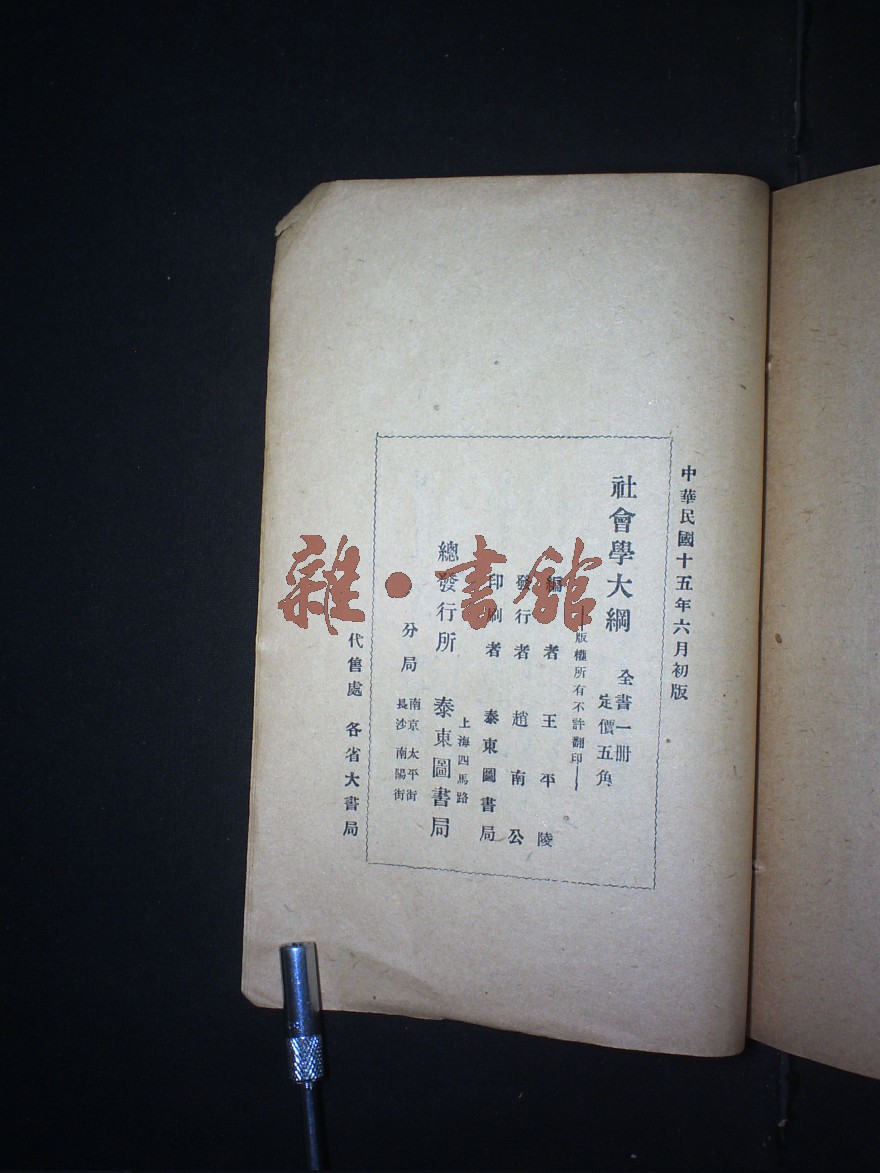 中華民國十五年六月初版
社會學大綱
全書一册
定價五角
版權所有不許翻印
編者 王平陵
發行者 趙南公
印刷者 泰東圖書局
上海四馬路
總發行所 泰東圖書局
分局
南京太平街
長沙南陽街
代售處 各省大書局
雜·書館